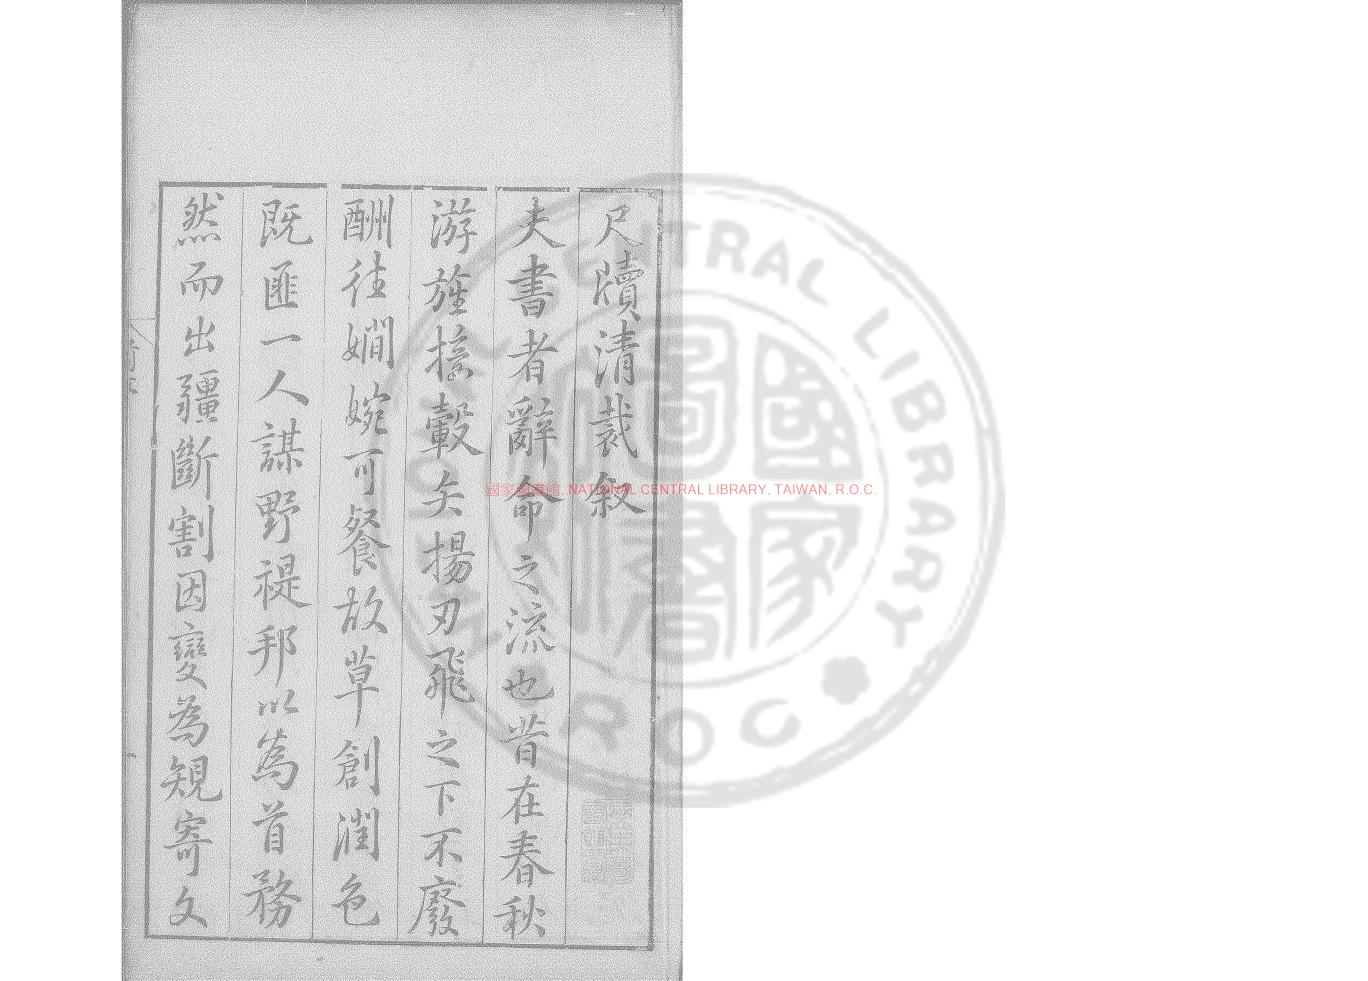 尺牘清裁叙
夫書者辭命之流也昔在春秋
游旌接轂矢揚刃飛之下不廢
酬往嫺婉可餐故草創潤色
既匪一人謀野禔邦以為首務
然而出疆斷割因變為規寄文
國家圖書館, NATIONAL CENTRAL LIBRARY, TAIWAN, R.O.C.
CENTRAL LIBRARY
R O C
國家圖書